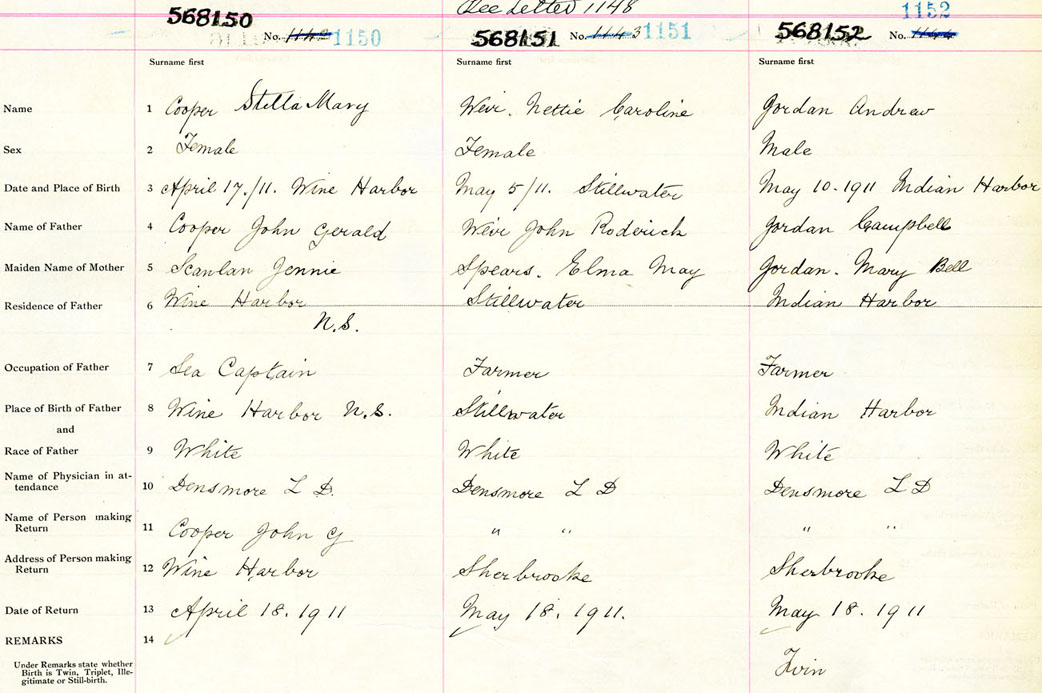 See Letter 1148
568150 No. 1142 1150 568151 No. 1143 1151 568152 No. 1144 1152
Surname first Surname first Surname first
Name 1 Cooper Stella Mary Weir. Nettie Caroline Jordan Andrew
Sex 2 Female Female Male
Date and Place of Birth 3 April 17./11. Wine Harbor May 5/11. Stillwater May 10-1911 Indian Harbor
Name of Father 4 Cooper John Gerald Weir John Roderick Jordan Campbell
Maiden Name of Mother 5 Scanlan Jennie Spears. Elma May Jordan. Mary Bell
Residence of Father 6 Wine Harbor Stillwater Indian Harbor
N.S.
Occupation of Father 7 Sea Captain Farmer Farmer
Place of Birth of Father 8 Wine Harbor N.S. Stillwater Indian Harbor
and
Race of Father 9 White White White
Name of Physician in at-
tendance 10 Densmore L D. Densmore L D Densmore L D
Name of Person making
Return 11 Cooper John G " " " "
Address of Person making
Return 12 Wine Harbor Sherbrooke Sherbrooke
Date of Return 13 April 18. 1911 May 18. 1911. May 18. 1911
REMARKS 14
Under Remarks state whether
Birth is Twin, Triplet, Ille-
gitimate or Still-birth. Twin